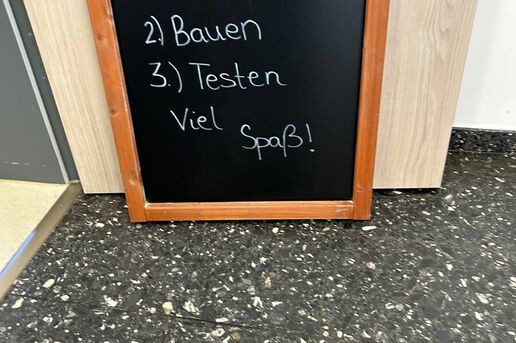 2.) Bauen
3.) Testen
Viel
Spaß!